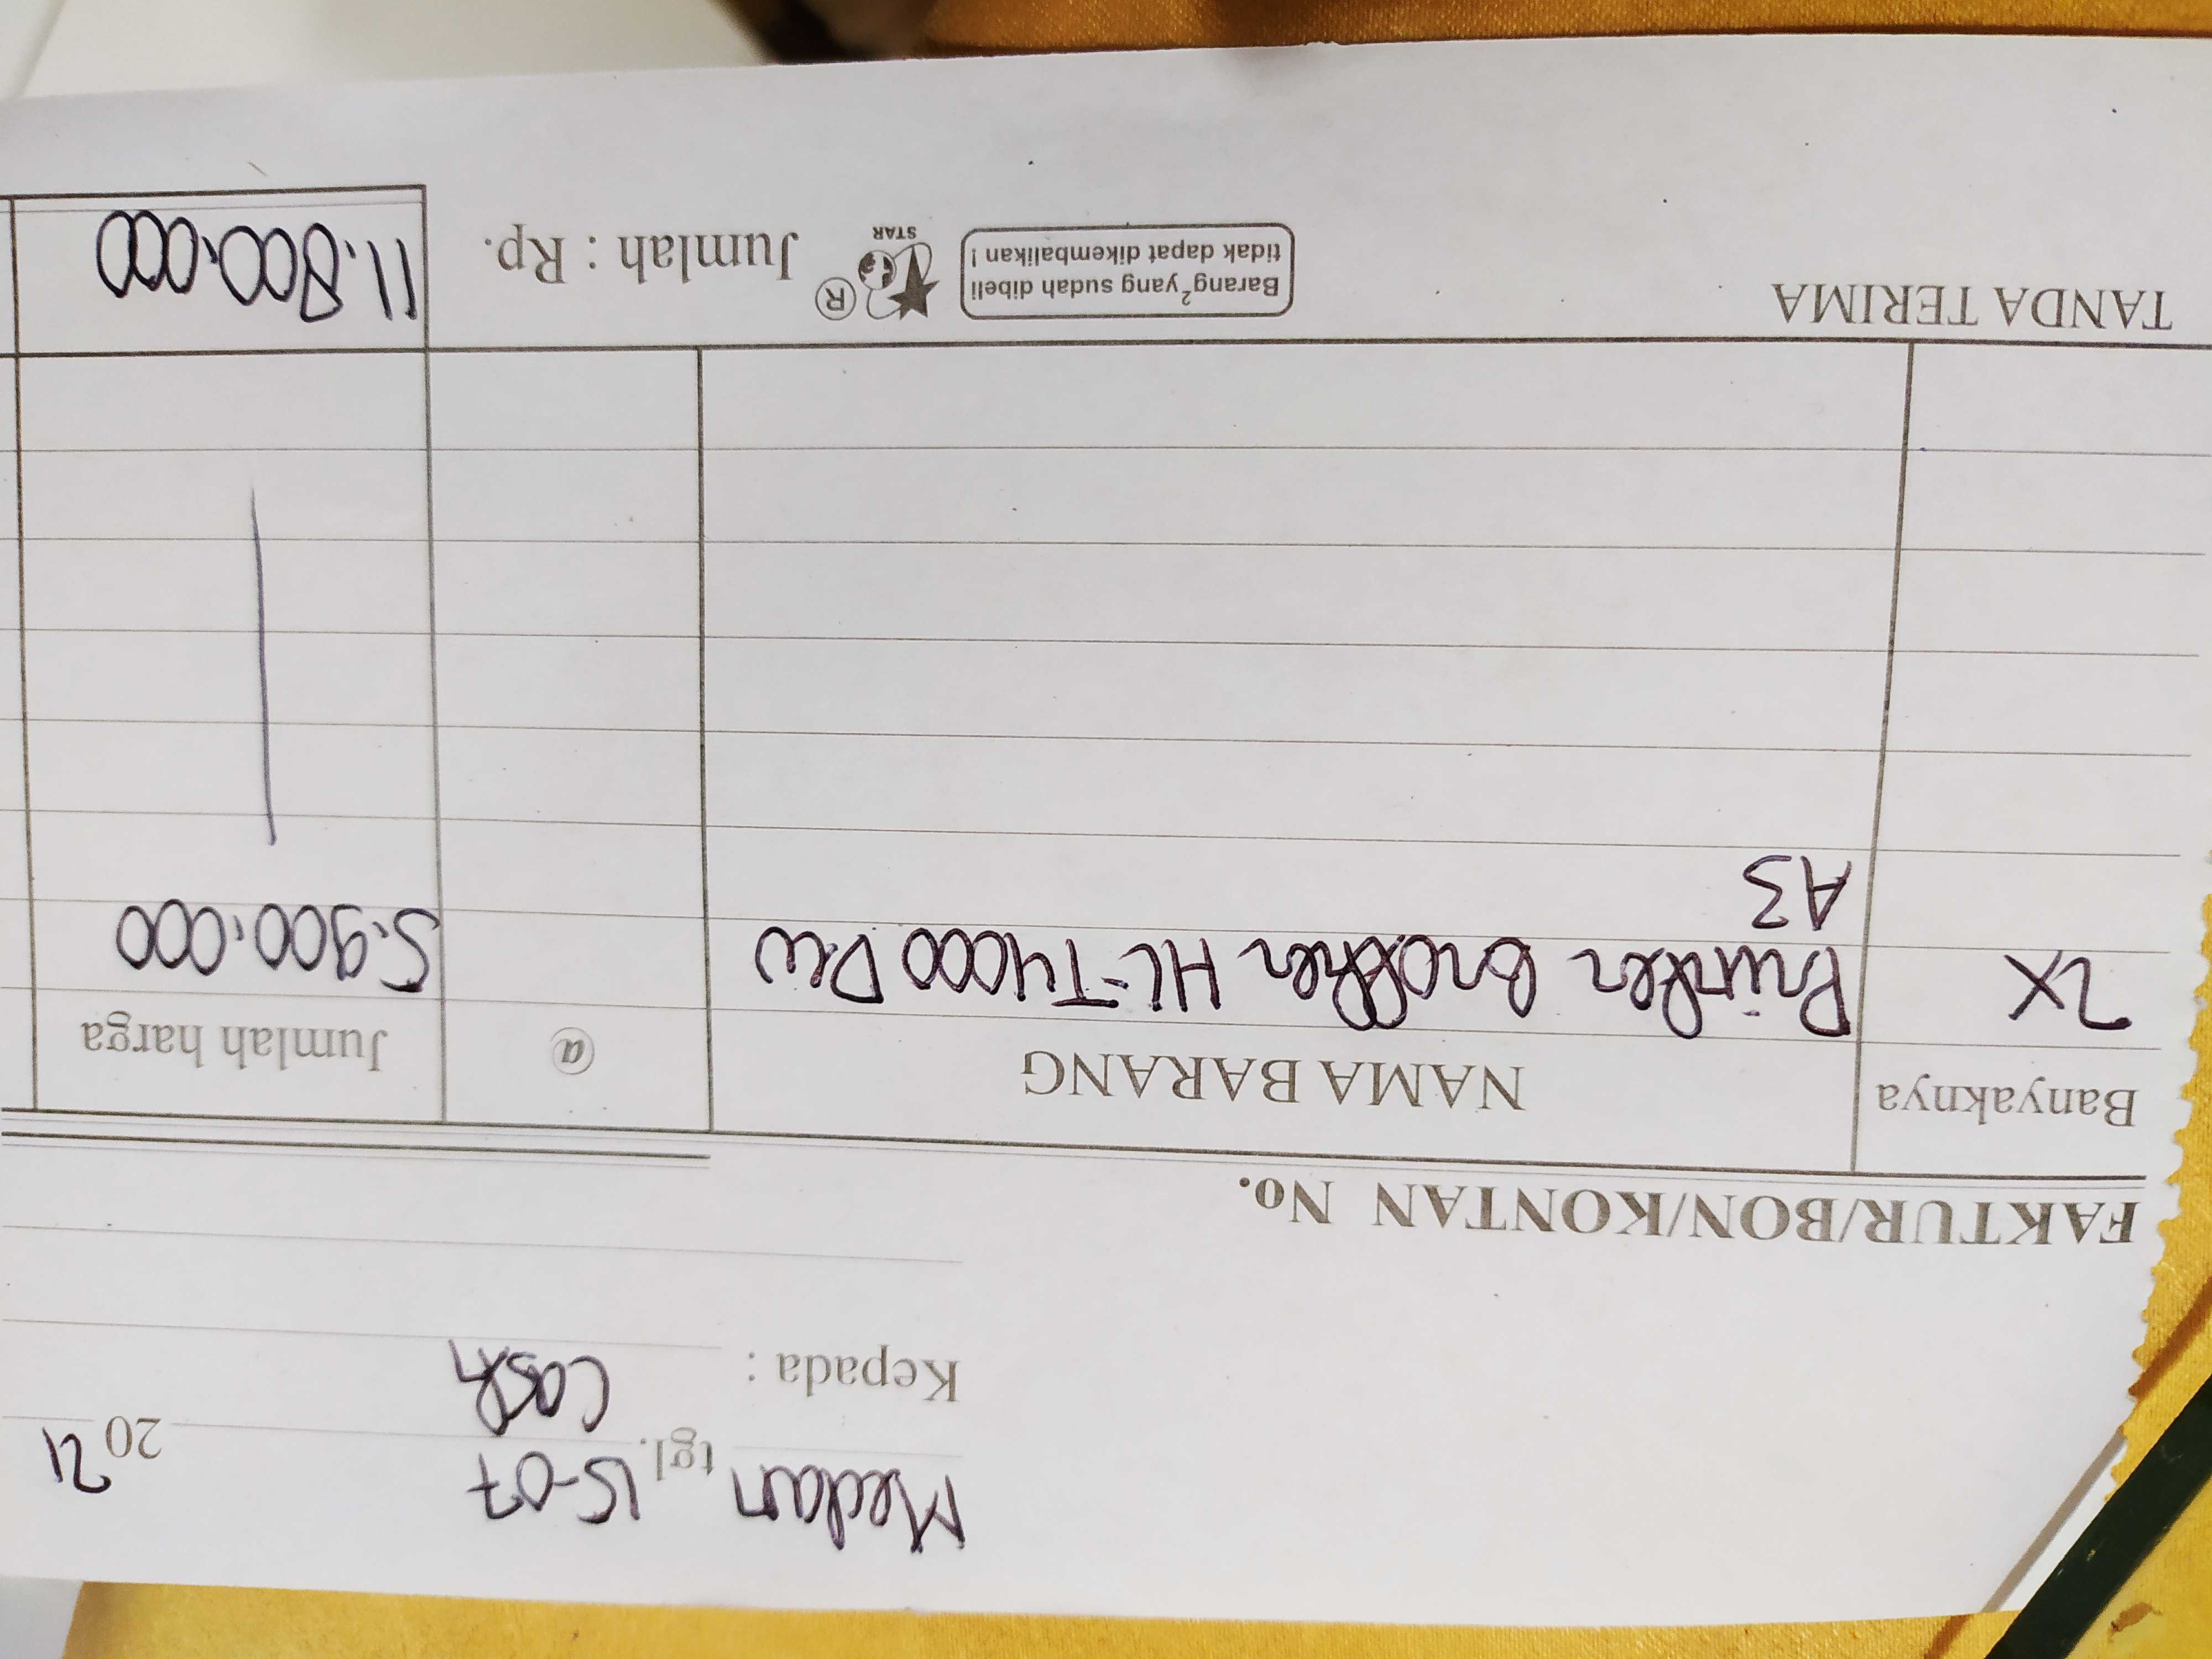 Medan, tgl. 15-07 20 21
Kepada : Cash
FAKTUR/BON/KONTAN No.
Banyaknya NAMA BARANG @ Jumlah harga
2x Printer Brother HL-T4000 DW 5.900.000
A3
TANDA TERIMA
Barang² yang sudah dibeli
tidak dapat dikembalikan !
®
STAR
Jumlah : Rp. 11.800.000